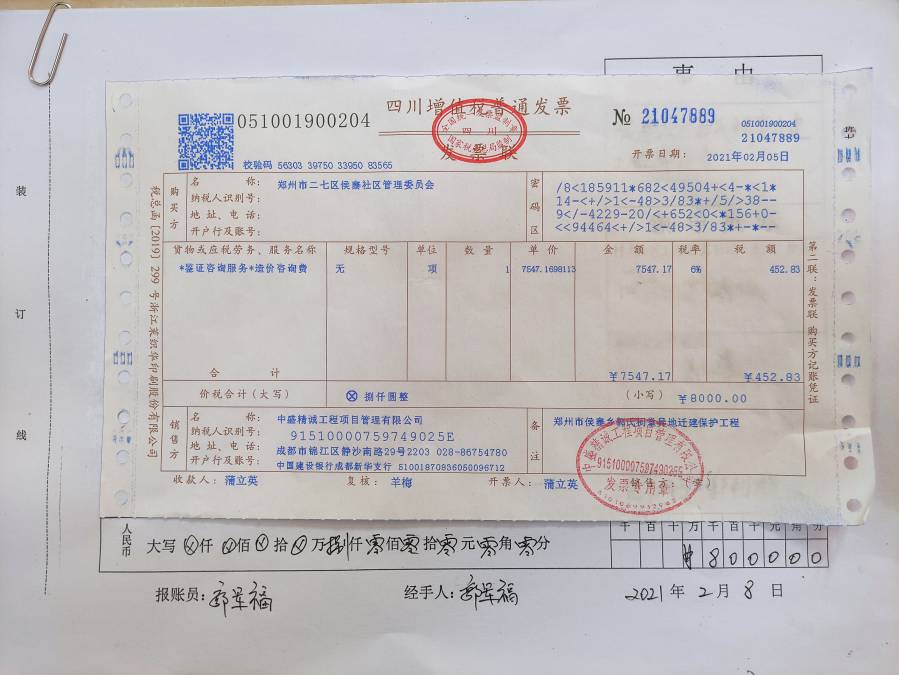 事 由
四川增值税普通发票
发票联
全国统一发票监制章
四 川
国家税务总局监制
051001900204
№ 21047889
051001900204
21047889
校验码 56303 39750 33950 83565
开票日期： 2021年02月05日
装
订
线
税总函[2019] 299 号浙江莱织华印刷股份有限公司
购买方
名 称： 郑州市二七区侯寨社区管理委员会
纳税人识别号：
地 址、电 话：
开户行及账号：
密码区
/8<185911*682<49504+<4-*<1*
14-<+/>1<-48>3/83*+/5/>38--
9</-4229-20/<+652<0<*156+0-
<<94464<+/>1<-48>3/83*+-*--
货物或应税劳务、服务名称 规格型号 单位 数 量 单 价 金 额 税率 税 额
*鉴证咨询服务*造价咨询费 无 项 1 7547.1698113 7547.17 6% 452.83
合 计 ￥7547.17 ￥452.83
价税合计（大写） ⊗ 捌仟圆整 （小写） ￥8000.00
销售方
名 称： 中盛精诚工程项目管理有限公司
纳税人识别号： 91510000759749025E
地 址、电 话： 成都市锦江区静沙南路29号2203 028-86754780
开户行及账号： 中国建设银行成都新华支行 51001870836050096712
备注
郑州市侯寨乡郭氏祠堂异地迁建保护工程
中盛精诚工程项目管理有限公司
发票专用章
收款人： 蒲立英 复核： 羊梅 开票人： 蒲立英 销售方：（章）
第二联：发票联 购买方记账凭证
人民币 大写 ⊗仟⊗佰⊗拾⊗万捌仟零佰零拾零元零角零分
千 百 十 万 千 百 十 元 角 分
¥ 8 0 0 0 0 0
报账员：郭军福 经手人：郭军福 2021 年 2 月 8 日